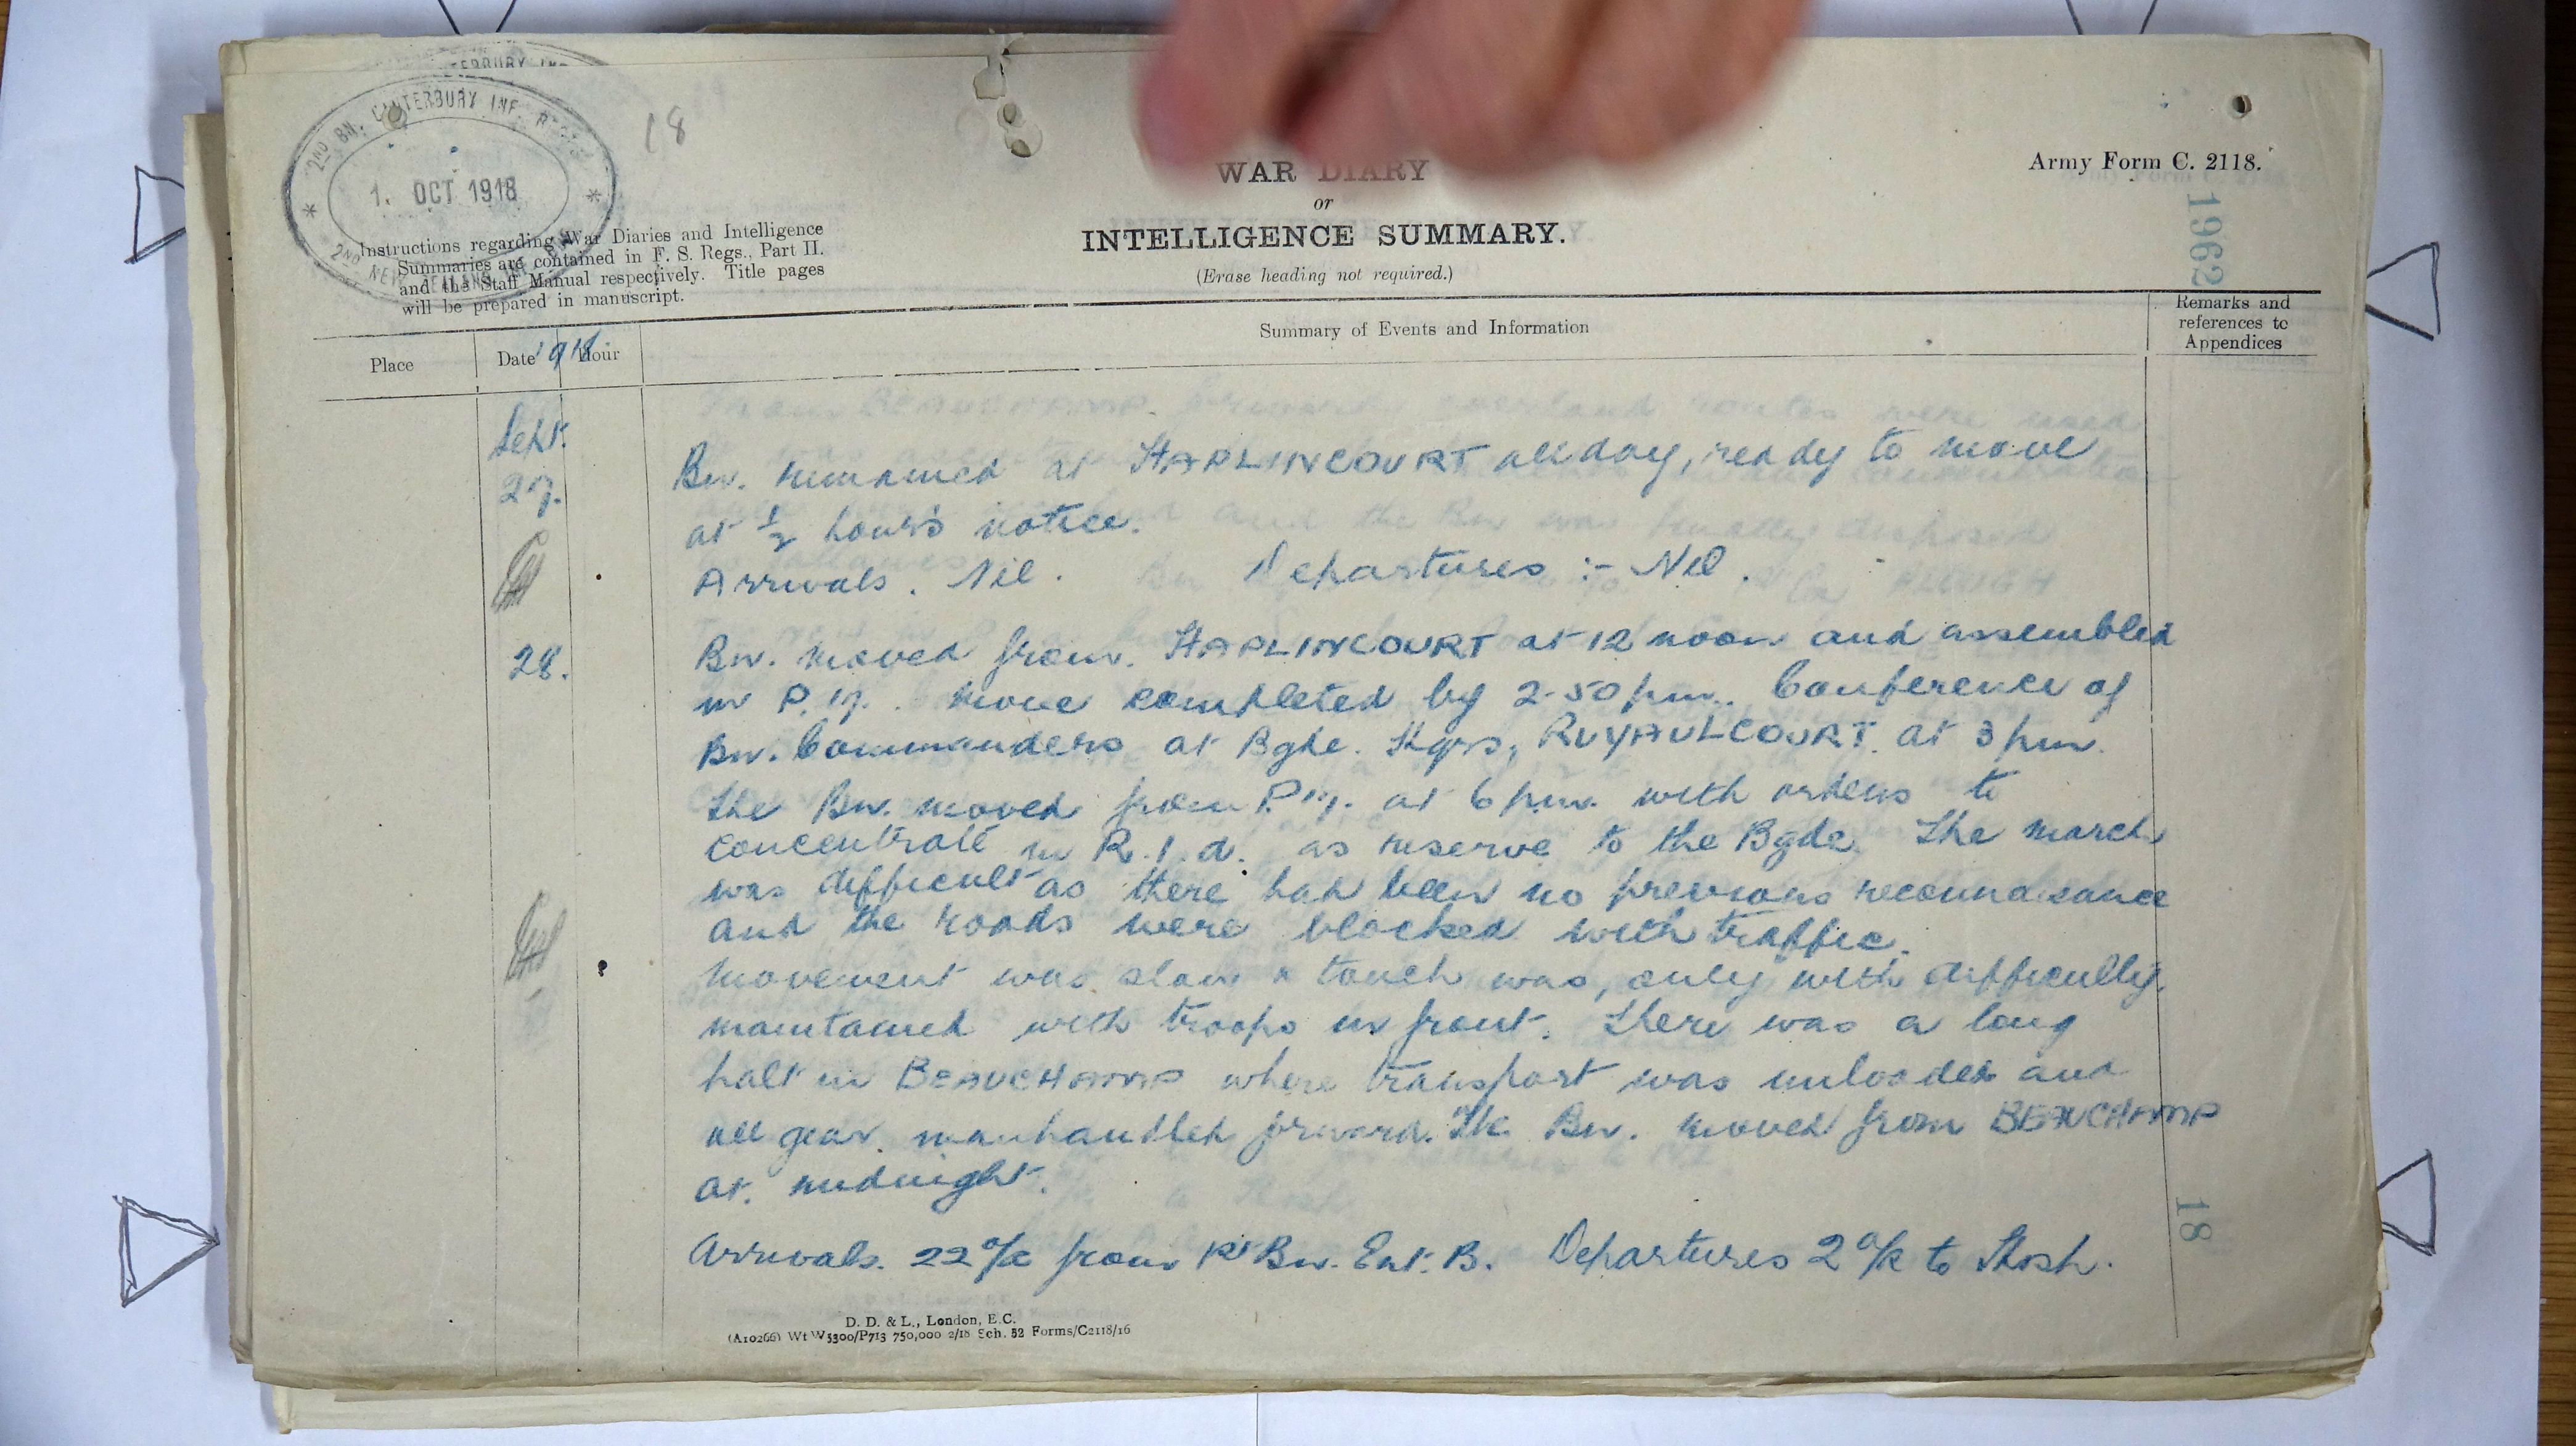 2ND BN. CANTERBURY INF. REGT.
1. OCT 1918
2ND NEW ZEALAND INF.
18
WAR DIARY
or
INTELLIGENCE SUMMARY.
(Erase heading not required.)
Army Form C. 2118.
1962
Instructions regarding War Diaries and Intelligence
Summaries are contained in F. S. Regs., Part II.
and the Staff Manual respectively. Title pages
will be prepared in manuscript.
Place
Date 1918 Hour
Summary of Events and Information
Remarks and
references to
Appendices
Sept.
27. Bn. remained at HAPLINCOURT all day, ready to move
at ½ hour's notice.
Arrivals. Nil. Departures :- Nil.
28. Bn. moved from HAPLINCOURT at 12 noon and assembled
in P.17. Move completed by 2-50 pm. Conference of
Bn. Commanders at Bgde. Hqrs, RUYAULCOURT. at 3 pm.
The Bn. moved from P.17. at 6 pm. with orders to
concentrate in R.1.d. as reserve to the Bgde. The march
was difficult as there had been no previous reconnaisance
and the roads were blocked with traffic.
Movement was slow & touch was, only with difficulty,
maintained with troops in front. There was a long
halt in BEAUCHAMP where transport was unloaded and
all gear manhandled forward. The Bn. moved from BEAUCHAMP
at midnight.
Arrivals. 22 O/R from 1st Bn. Ent. B. Departures 2 O/R to Hosp.
18
D. D. & L., London, E.C.
(A10266) Wt W5300/P713 750,000 2/18 Sch. 52 Forms/C2118/16